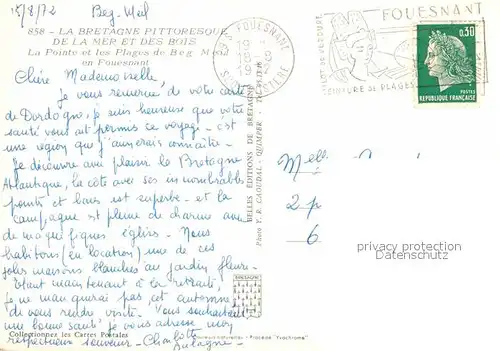 15/8/72 Beg-Meil
858 - LA BRETAGNE PITTORESQUE
DE LA MER ET DES BOIS
La Pointe et les Plages de Beg Meil
en Fouesnant
Chère Mademoiselle,
Je vous remercie de votre carte
de Dordogne, je suis heureuse que votre
santé vous ait permis ce voyage - c'est
une région que j'aimerais connaître -
Je découvre avec plaisir la Bretagne
Atlantique, la côte avec ses innombrables
points et baies est superbe - et la
campagne est pleine de charme avec
de magnifiques églises - Nous
habitons (en location) une de ces
jolies maisons blanches au jardin fleuri -
Etant maintenant à la retraite,
je ne manquerai pas cet automne
de vous rendre visite. Vous souhaitant
une bonne santé, je vous adresse mon
respectueux souvenir - Charlotte
Collectionnez les Cartes Postales
BELLES ÉDITIONS DE BRETAGNE
Photo Y. R. CAOUDAL - QUIMPER
FOUESNANT
FINISTERE
FOUESNANT
ILOT DE VERDURE
CEINTURE DE PLAGES
0,30
POSTES
REPUBLIQUE FRANÇAISE
Melle
2 p
6
privacy protection
watermark
BRETAGNE
Couleurs naturelles - Procédé "Irachrome"